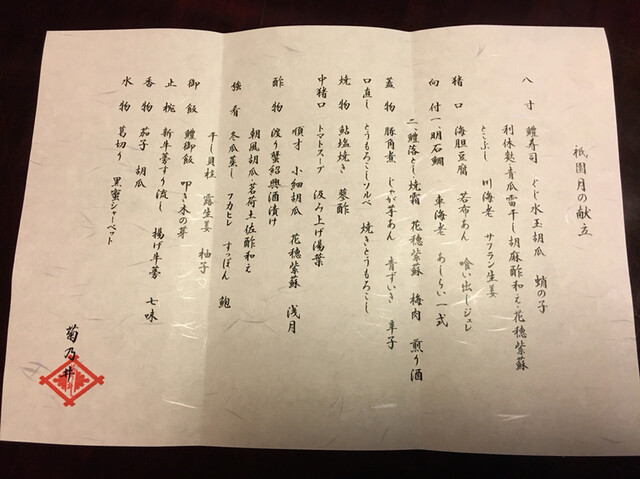 祇園月の献立
八寸 鱧寿司 ぐじ水玉胡瓜 蛸の子
利休麩・青瓜雷干し胡麻酢和え・花穂紫蘇
とこぶし 川海老 サフラン生姜
猪口 海胆豆腐 若布あん 喰い出しジュレ
向付 一、明石鯛 車海老 あしらい一式
二、鱧落とし・焼霜 花穂紫蘇 梅肉 煎り酒
蓋物 豚角煮 じゃが芋あん 青ずいき 辛子
口直し とうもろこしソルベ 焼きとうもろこし
焼物 鮎塩焼き 蓼酢
中猪口 トマトスープ 汲み上げ湯葉
順才 小細胡瓜 花穂紫蘇 浅月
酢物 渡り蟹紹興酒漬け
朝風胡瓜茗荷土佐酢和え
強肴 冬瓜蒸し フカヒレ すっぽん 鮑
干し貝柱 露生姜 柚子
御飯 鱧御飯 叩き木の芽
止椀 新牛蒡すり流し 揚げ牛蒡 七味
香物 茄子 胡瓜
水物 葛切り 黒蜜シャーベット
菊乃井